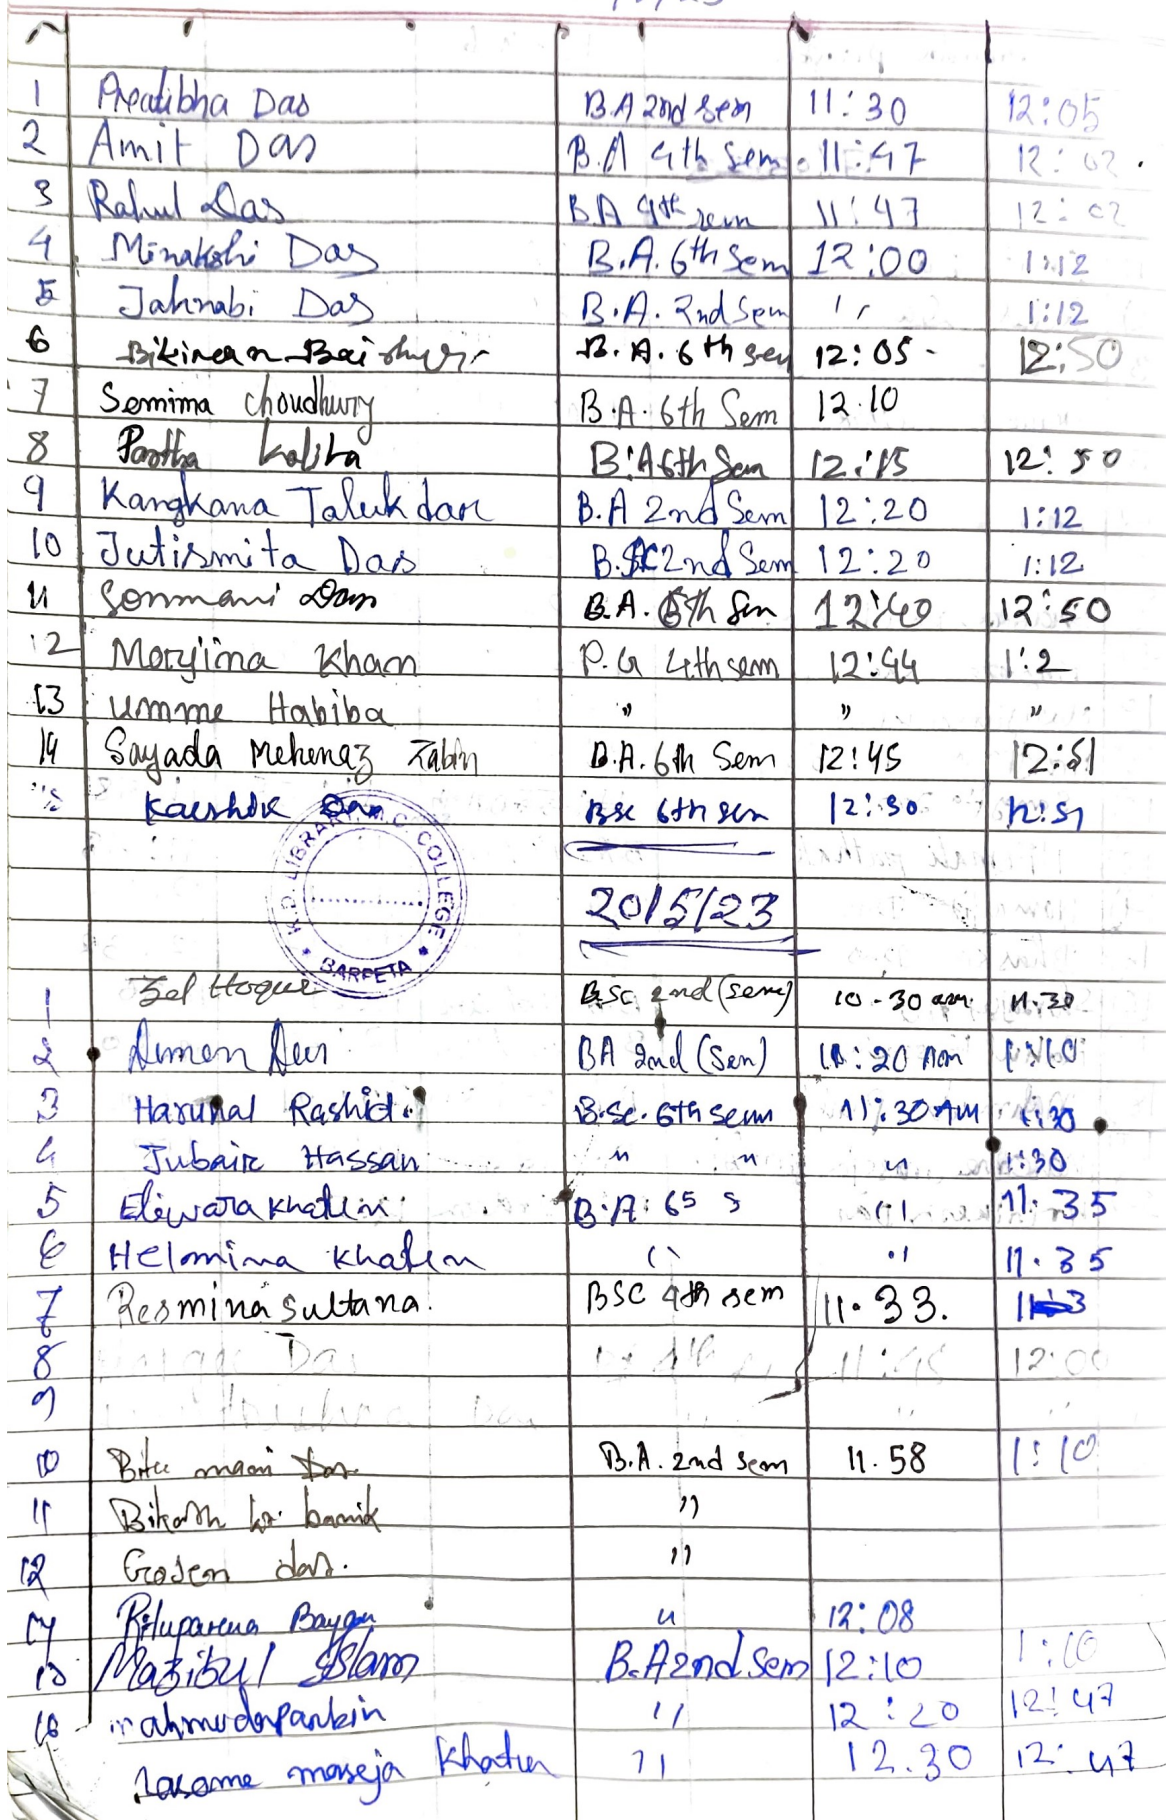 1 Pratibha Das B.A 2nd sem 11:30 12:05
2 Amit Das B.A 4th Sem 11:47 12:02
3 Rahul Das BA 4th sem 11:47 12:02
4 Minakshi Das B.A. 6th Sem 12:00 1:12
5 Jahnabi Das B.A. 2nd Sem " 1:12
6 B.A. 6th sem 12:05 12:50
7 Semima Choudhury B.A. 6th Sem 12.10
8 Partha Kalita B.A 6th Sem 12:15 12:50
9 Kangkana Talukdar B.A 2nd Sem 12:20 1:12
10 Jutismita Das B.SC 2nd Sem 12:20 1:12
11 Das B.A. 6th Sem 12:40 12:50
12 Morjina Khan P.G 4th sem 12:44 1:2
13 Umme Habiba " " "
14 Sayada Mehenaz Zabin B.A. 6th Sem 12:45 12:51
15 Kaushik Das BSc 6th sem 12:50 12:51
K.D. LIBRARY M.C. COLLEGE
BARPETA
20/5/23
1 Hoque BSc 2nd (Sem) 10-30 am 11:30
2 BA 2nd (Sem) 20 Am 1:10
3 Harunal Rashid B.Sc. 6th sem 11:30 AM 1:30
4 Jubair Hassan " " " 1:30
5 Eliwara Khatun B.A. " 11:35
6 Helmina Khatun " " 11.35
7 Resmina Sultana. BSC 4th sem 11.33.
8 Das 12:00
9
10 Bitu mani Das B.A. 2nd sem 11.58 1:10
11 Bikash kr. banik "
12 das. "
14 Rituparna Bayan " 12:08
15 Mazibul Islam B.A 2nd Sem 12:10 1:10
16 " 12:20 12:47
Khatun " 12.30 12:47